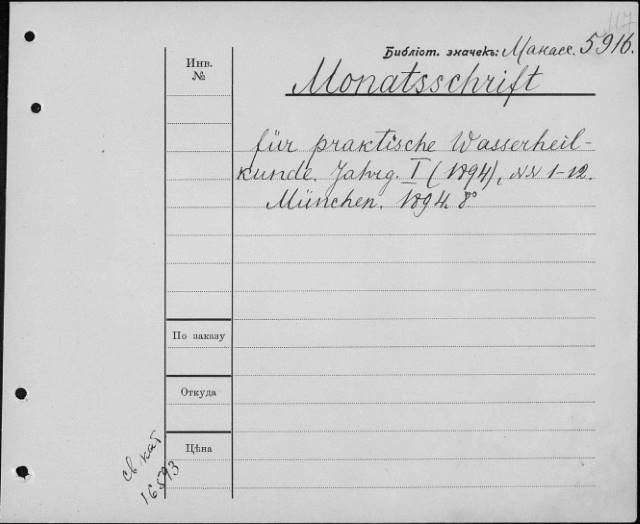 117
Библіот. значекъ: Манасс. 5916.
Инв.
№
Monatsschrift
für praktische Wasserheil-
kunde. Jahrg. I (1894), NN 1-12.
München. 1894. 8°
По заказу
Откуда
Цѣна
св. кат
16593